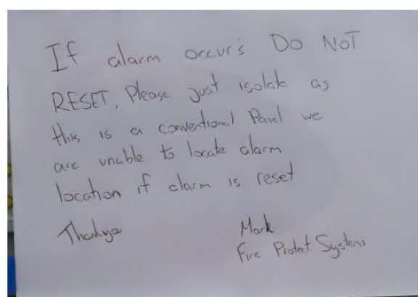 If alarm occurs DO NOT
RESET. Please just isolate as
this is a conventional Panel we
are unable to locate alarm
location if alarm is reset
Thankyou
Mark
Fire Protect Systems